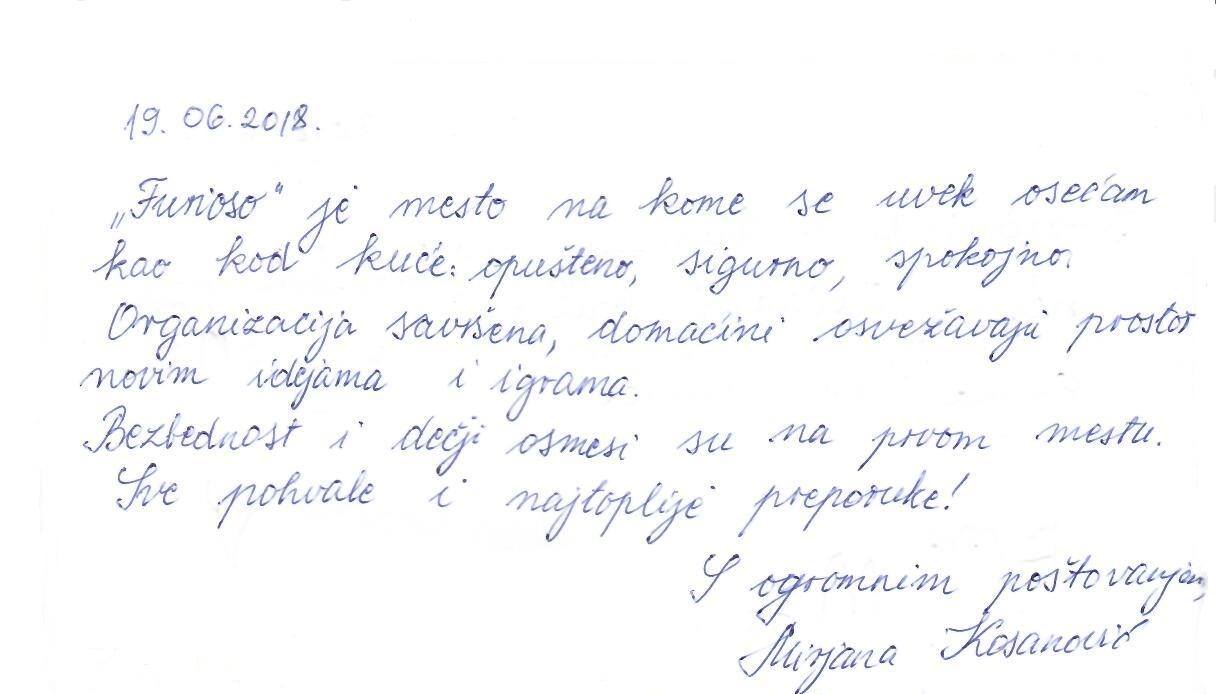 19. 06. 2018.
„Furioso“ je mesto na kome se uvek osećam
kao kod kuće: opušteno, sigurno, spokojno.
Organizacija savršena, domaćini osvežavaju prostor
novim idejama i igrama.
Bezbednost i dečji osmesi su na prvom mestu.
Sve pohvale i najtoplije preporuke!
S ogromnim poštovanjem,
Mirjana Kosanović